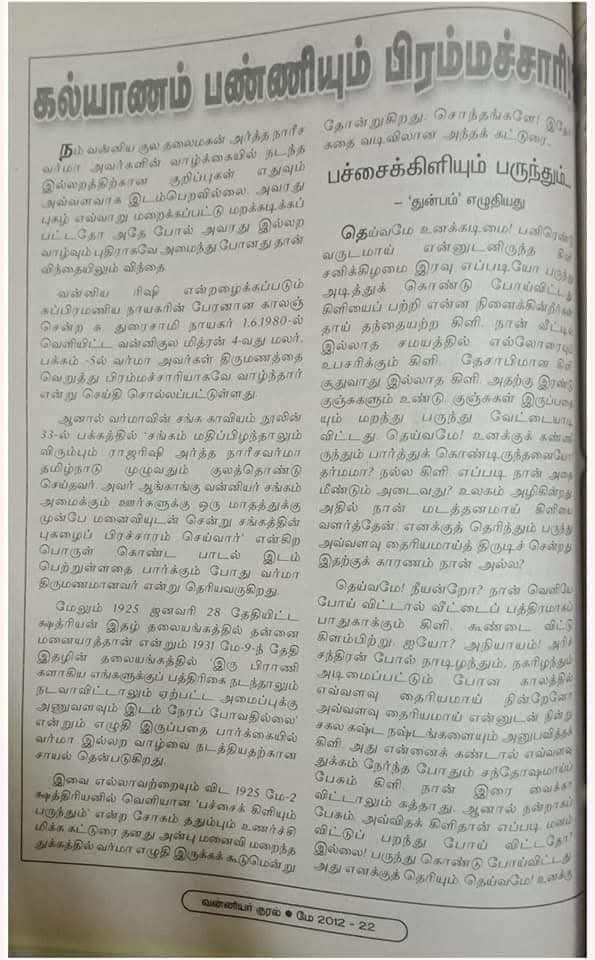 கல்யாணம் பண்ணியும் பிரம்மச்சாரி!
நம் வன்னிய குல தலைமகன் அர்த்த நாரீச
வர்மா அவர்களின் வாழ்க்கையில் நடந்த
இல்லறத்திற்கான குறிப்புகள் எதுவும்
அவ்வளவாக இடம்பெறவில்லை. அவரது
புகழ் எவ்வாறு மறைக்கப்பட்டு மறக்கடிக்கப்
பட்டதோ அதே போல் அவரது இல்லற
வாழ்வும் புதிராகவே அமைந்து போனது தான்
விந்தையிலும் விந்தை.
வன்னிய ரிஷி என்றழைக்கப்படும்
சுப்பிரமணிய நாயகரின் பேரனான காலஞ்
சென்ற சு. துரைசாமி நாயகர் 1.6.1980-ல்
வெளியிட்ட வன்னிகுல மித்ரன் 4-வது மலர்,
பக்கம் -5ல் வர்மா அவர்கள் திருமணத்தை
வெறுத்து பிரம்மச்சாரியாகவே வாழ்ந்தார்
என்று செய்தி சொல்லப்பட்டுள்ளது.
ஆனால் வர்மாவின் சங்க காவியம் நூலின்
33-ல் பக்கத்தில் 'சங்கம் மதிப்பிழந்தாலும்
விரும்பும் ராஜரிஷி அர்த்த நாரீசவர்மா
தமிழ்நாடு முழுவதும் குலத்தொண்டு
செய்தவர். அவர் ஆங்காங்கு வன்னியர் சங்கம்
அமைக்கும் ஊர்களுக்கு ஒரு மாதத்துக்கு
முன்பே மனைவியுடன் சென்று சங்கத்தின்
புகழைப் பிரச்சாரம் செய்வார்' என்கிற
பொருள் கொண்ட பாடல் இடம்
பெற்றுள்ளதை பார்க்கும் போது வர்மா
திருமணமானவர் என்று தெரியவருகிறது.
மேலும் 1925 ஜனவரி 28 தேதியிட்ட
க்ஷத்ரியன் இதழ் தலையங்கத்தில் தன்னை
மனையரத்தான் என்றும் 1931 மே-9-ந் தேதி
இதழின் தலையங்கத்தில் 'இரு பிராணி
களாகிய எங்களுக்குப் பத்திரிகை நடந்தாலும்
நடவாவிட்டாலும் ஏற்பட்ட அமைப்புக்கு
அணுவளவும் இடம் நேரப் போவதில்லை'
என்றும் எழுதி இருப்பதை பார்க்கையில்
வர்மா இல்லற வாழ்வை நடத்தியதற்கான
சாயல் தென்படுகிறது.
இவை எல்லாவற்றையும் விட 1925 மே-2
க்ஷத்திரியனில் வெளியான 'பச்சைக் கிளியும்
பருந்தும்' என்ற சோகம் ததும்பும் உணர்ச்சி
மிக்க கட்டுரை தனது அன்பு மனைவி மறைந்த
துக்கத்தில் வர்மா எழுதி இருக்கக் கூடுமென்று
தோன்றுகிறது. சொந்தங்களே! இதோ
கதை வடிவிலான அந்தக் கட்டுரை..
பச்சைக்கிளியும் பருந்தும்..
– 'துன்பம்' எழுதியது
தெய்வமே உனக்கடிமை! பனிரெண்டு
வருடமாய் என்னுடனிருந்த கிளி
சனிக்கிழமை இரவு எப்படியோ பருந்து
அடித்துக் கொண்டு போய்விட்டது
கிளியைப் பற்றி என்ன நினைக்கின்றீர்கள்
தாய் தந்தையற்ற கிளி. நான் வீட்டில்
இல்லாத சமயத்தில் எல்லோரையும்
உபசரிக்கும் கிளி. தேசாபிமான கிளி
சூதுவாது இல்லாத கிளி. அதற்கு இரண்டு
குஞ்சுகளும் உண்டு. குஞ்சுகள் இருப்பதை
யும் மறந்து பருந்து வேட்டையாடி
விட்டது. தெய்வமே! உனக்குக் கண்ணி
ருந்தும் பார்த்துக் கொண்டிருந்தனையோ
தர்மமா? நல்ல கிளி. எப்படி நான் அதை
மீண்டும் அடைவது? உலகம் அழிகின்றது
அதில் நான் மடத்தனமாய் கிளியை
வளர்த்தேன். எனக்குத் தெரிந்தும் பருந்து
அவ்வளவு தைரியமாய்த் திருடிச் சென்றது
இதற்குக் காரணம் நான் அல்ல?
தெய்வமே! நீயன்றோ? நான் வெளியே
போய் விட்டால் வீட்டைப் பத்திரமாகப்
பாதுகாக்கும் கிளி. கூண்டை விட்டு
கிளம்பிற்று. ஐயோ? அநியாயம்! அரிச்
சந்திரன் போல் நாடிழந்தும், நகரிழந்தும்
அடிமைப்பட்டும் போன காலத்தில்
எவ்வளவு தைரியமாய் நின்றேனோ
அவ்வளவு தைரியமாய் என்னுடன் நின்று
சகல கஷ்ட நஷ்டங்களையும் அனுபவித்தக்
கிளி. அது என்னைக் கண்டால் எவ்வளவு
துக்கம் நேர்ந்த போதும் சந்தோஷமாய்ப்
பேசும் கிளி. நான் இரை வைக்கா
விட்டாலும் கத்தாது. ஆனால் நன்றாகப்
பேசும். அவ்விதக் கிளிதான் எப்படி மனம்
விட்டுப் பறந்து போய் விட்டதோ?
இல்லை! பருந்து கொண்டு போய்விட்டது
அது எனக்குத் தெரியும் தெய்வமே! உனக்கு
வன்னியர் குரல் ● மே 2012 - 22